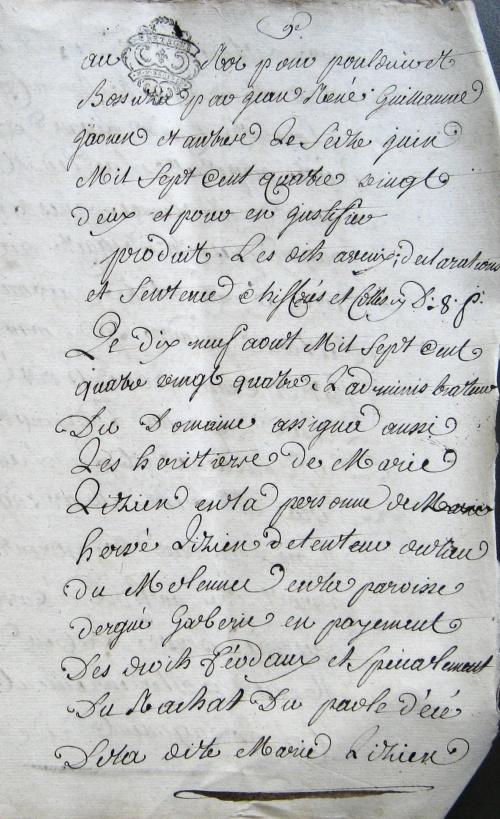 9e
au Roi pour poulduic et
par jean René Guillaume
gaonen et autres Le Seize juin
Mil Sept Cent quatre vingt
deux et pour en justifier
produit Les dits aveux, declarations
et Sentence Chiffrés et Cottés
Le dix neuf aout Mil Sept Cent
quatre vingt quatre L'administrateur
Du Domaine assigna aussi
Les heritiers de Marie
Lizien en la personne de
hervé Lizien detenteur
du Molennec en la paroisse
dergué Gaberic en payement
Des droits féodaux et Specialement
Du Rachat Du par le décé
De la dite Marie Lizien